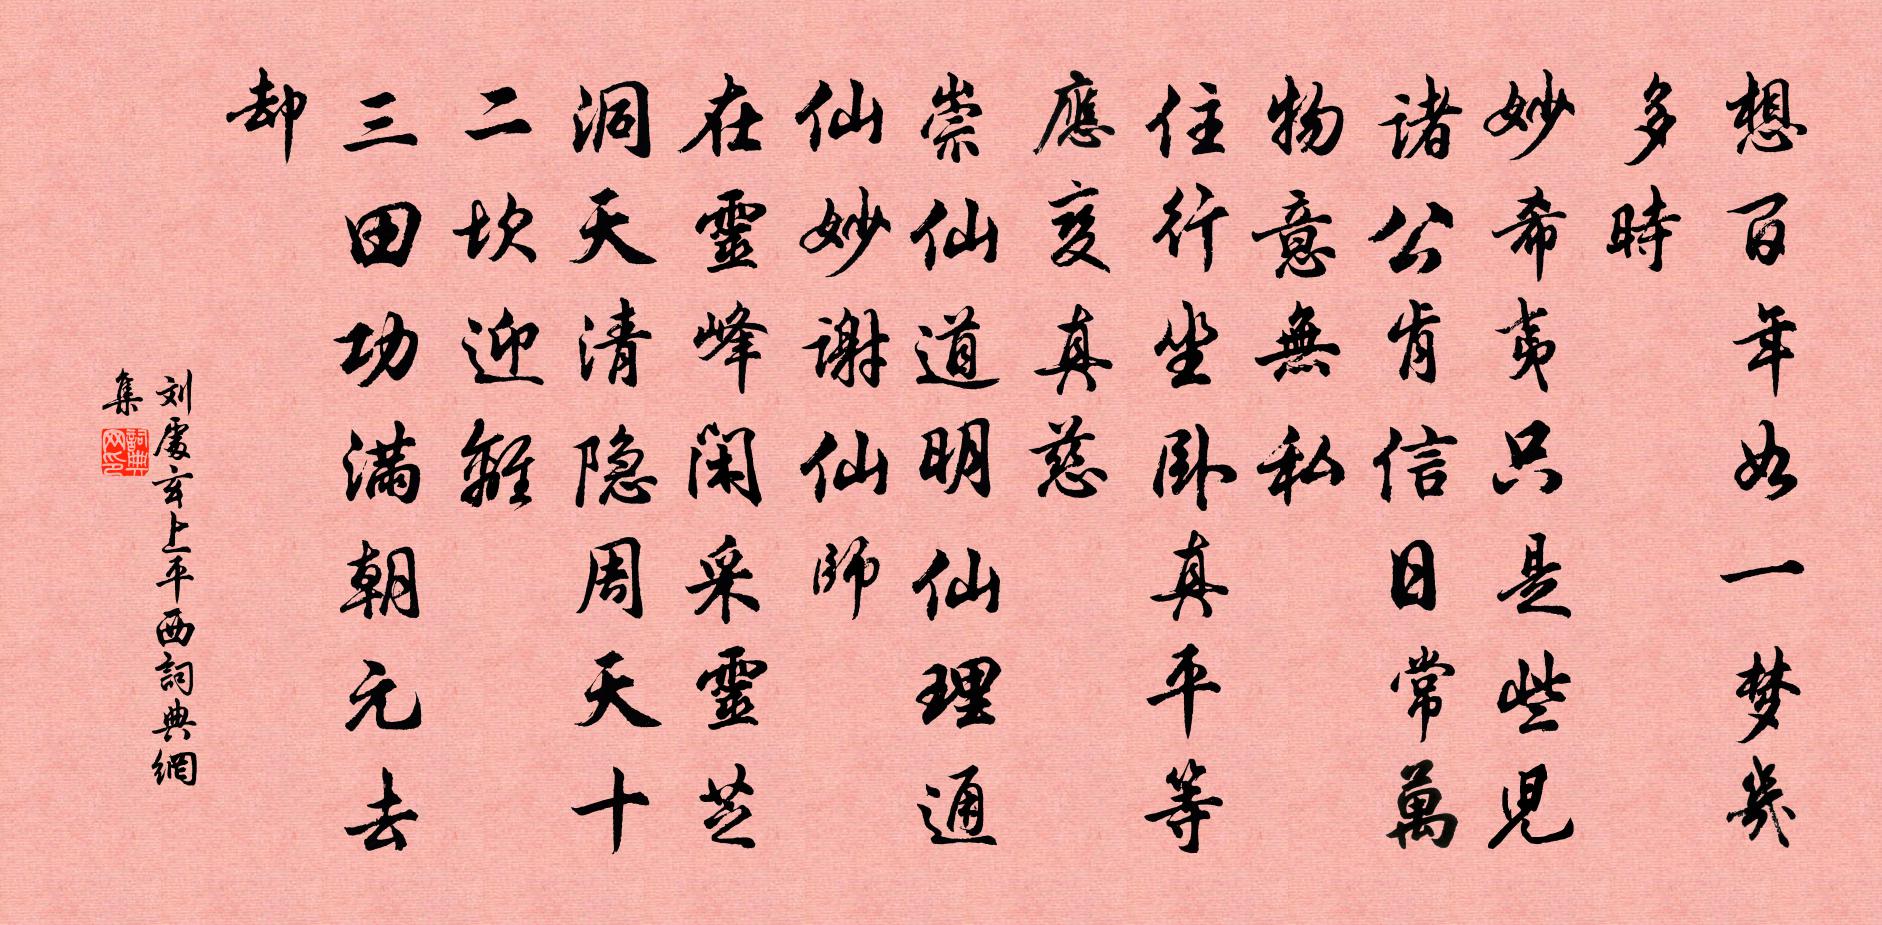 想百年如一梦几
多時
妙希夷只是些児
诸公肯信日常萬
物意無私
住行坐卧真平等
應变真慈
崇仙仙道明仙理通
仙妙谢仙師
在靈峰闲采靈芝
洞天清隐周天十
二坎迎離
三田功满朝元去
却
刘處玄上平西詞典網
集
詞典
网印